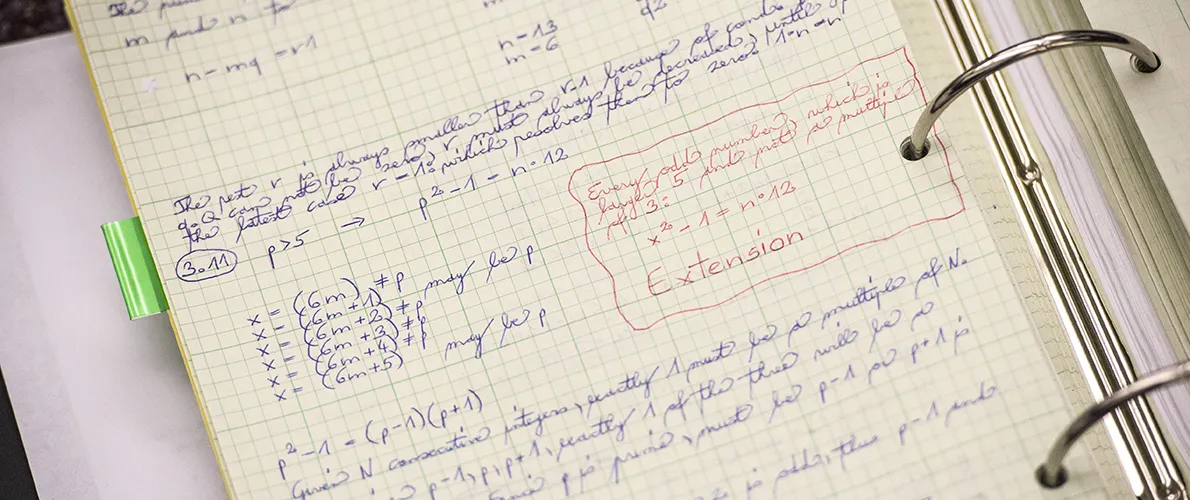 The
m and n to
n - mq = r1
n = 13
m = 6
The rest r is always smaller than r-1 because of cond
q. Q can not be zero, r must always be decreased, until
the latest case r = 1: which resolves then to zero: 1·n = n
3.11 p>5 → p² - 1 = n·12
x = (6m) ≠ p
x = (6m+1) may be p
x = (6m+2) ≠ p
x = (6m+3) ≠ p
x = (6m+4) ≠ p
x = (6m+5) may be p
Every odd number, which is
larger 5 and not a multiple
of 3:
x² - 1 = n·12
Extension
p² - 1 = (p-1)(p+1)
Given N consecutive integers, exactly 1 must be a multiple of N.
p-1, p, p+1, exactly 1 of the three will be a
p is prime, must be p-1 or p+1 is
is odd, thus p-1 and